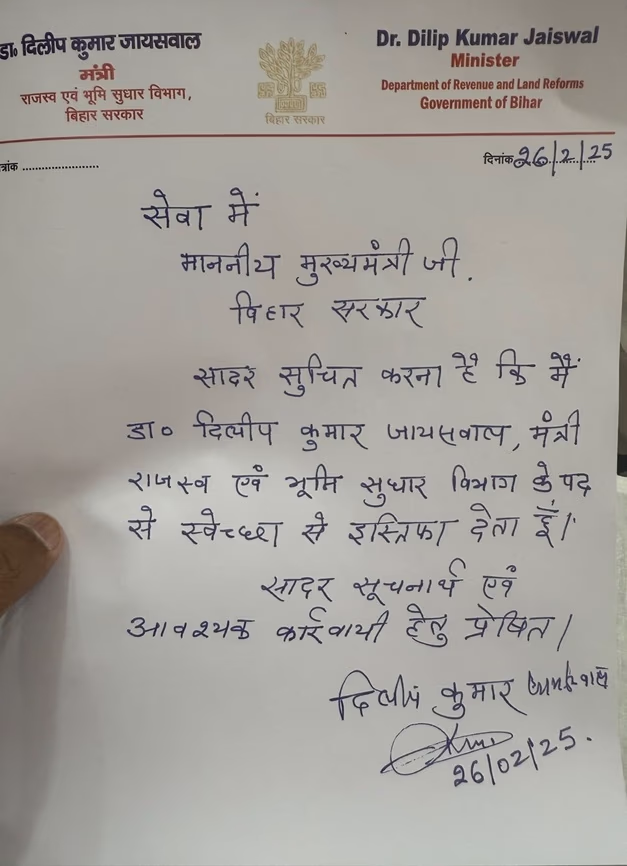 डा० दिलीप कुमार जायसवाल
मंत्री
राजस्व एवं भूमि सुधार विभाग,
बिहार सरकार
बिहार सरकार
Dr. Dilip Kumar Jaiswal
Minister
Department of Revenue and Land Reforms
Government of Bihar
त्रांक ........................
दिनांक 26/2/25
सेवा में
माननीय मुख्यमंत्री जी.
बिहार सरकार
सादर सुचित करना है कि मैं
डा० दिलीप कुमार जायसवाल, मंत्री
राजस्व एवं भूमि सुधार विभाग के पद
से स्वेच्छा से इस्तिफा देता हूँ।
सादर सूचनार्थ एवं
आवश्यक कार्रवायी हेतु प्रेषित।
दिलीप कुमार
26/02/25.